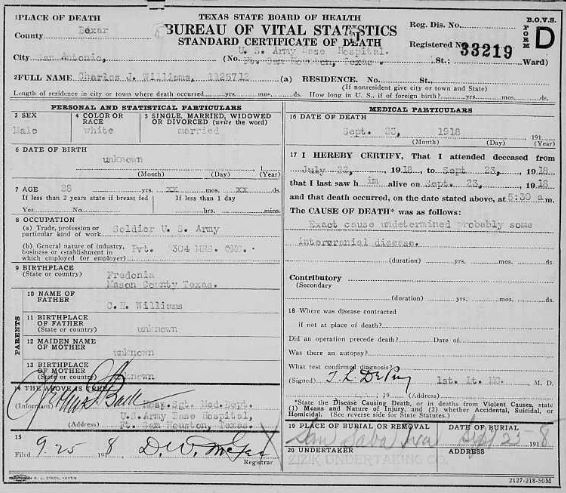 PLACE OF DEATH
TEXAS STATE BOARD OF HEALTH
BUREAU OF VITAL STATISTICS
STANDARD CERTIFICATE OF DEATH
B.O.V.S.
FORM D
County Bexar
Reg. Dis. No.
Registered No. 33219
City San Antonio, (No. U. S. Army Base Hospital, Ft. Sam Houston, Texas. St.; Ward)
2 FULL NAME Charles J. Williams, (a) RESIDENCE. No. St.,
(If nonresident give city or town and State)
Length of residence in city or town where death occurred yrs. mos. ds. How long in U. S., if of foreign birth? yrs. mos. ds.
PERSONAL AND STATISTICAL PARTICULARS
3 SEX
Male
4 COLOR OR RACE
white
5 SINGLE, MARRIED, WIDOWED OR DIVORCED (write the word)
married
6 DATE OF BIRTH
unknown
(Month) (Day) (Year)
7 AGE 28 yrs. xx mos. xx ds.
If less than 2 years state if breast fed If less than 1 day
Yes No hrs. min.
8 OCCUPATION
(a) Trade, profession or particular kind of work Soldier U. S. Army
(b) General nature of industry, business or establishment in which employed (or employer) Pvt. 304
9 BIRTHPLACE
(State or country)
Fredonia
Mason County Texas.
PARENTS
10 NAME OF FATHER
Williams
11 BIRTHPLACE OF FATHER
(State or country) unknown
12 MAIDEN NAME OF MOTHER
unknown
13 BIRTHPLACE OF MOTHER
(State or country) unknown
14 THE ABOVE IS TRUE
(Informant) Sgt. Med. Dept.
U.S. Army Base Hospital,
(Address) Ft. Sam Houston, Texas.
15
Filed 9-25 1918
Registrar
MEDICAL PARTICULARS
16 DATE OF DEATH
Sept. 23, 1918 191
(Month) (Day) (Year)
17 I HEREBY CERTIFY, That I attended deceased from
July 22, 1918 to Sept 23, 1918
that I last saw him alive on Sept. 23, 1918
and that death occurred, on the date stated above, at 5:30 a.m.
The CAUSE OF DEATH* was as follows:
Exact cause undetermined probably some
intercranial disease.
(duration) yrs. mos. ds.
Contributory
(Secondary
(duration) yrs. mos. ds.
18 Where was disease contracted
if not at place of death?
Did an operation precede death? Date of
Was there an autopsy?
What test confirmed diagnosis?
(Signed) 1st. Lt. M. D.
, 19 (Address)
*State the Disease Causing Death, or in deaths from Violent Causes, state (1) Means and Nature of Injury, and (2) whether Accidental, Suicidal, or Homicidal. (See reverse side for State Statutes).
19 PLACE OF BURIAL OR REMOVAL
San Saba
DATE OF BURIAL
Sept 25 1918
20 UNDERTAKER
ZIZIK UNDERTAKING CO.
ADDRESS
2127-218-50M